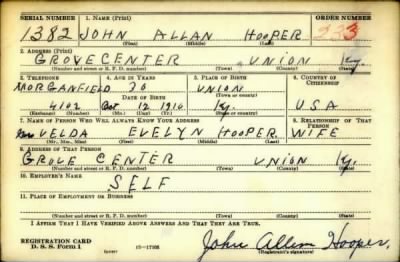 SERIAL NUMBER 1. NAME (Print) ORDER NUMBER
1382 JOHN ALLAN HOOPER 233
(First) (Middle) (Last)
2. ADDRESS (Print)
GROVECENTER UNION Ky.
(Number and street or R. F. D. number) (Town) (County) (State)
3. TELEPHONE 4. AGE IN YEARS 5. PLACE OF BIRTH 6. COUNTRY OF CITIZENSHIP
MORGANFIELD 30 UNION
4102 Oct 12 1910 Ky. USA
(Exchange) (Number) (Mo.) (Day) (Yr.) (Town) (County) (State)
7. NAME OF PERSON WHO WILL ALWAYS KNOW YOUR ADDRESS 8. RELATIONSHIP OF THAT PERSON
Mrs VELDA EVELYN HOOPER WIFE
(Mr., Mrs., Miss) (First) (Middle) (Last)
9. ADDRESS OF THAT PERSON
GROVE CENTER UNION Ky.
(Number and street or R. F. D. number) (Town) (County) (State)
10. EMPLOYER'S NAME
SELF
11. PLACE OF EMPLOYMENT OR BUSINESS
(Number and street or R. F. D. number) (Town) (County) (State)
I AFFIRM THAT I HAVE VERIFIED ABOVE ANSWERS AND THAT THEY ARE TRUE.
REGISTRATION CARD
D. S. S. Form 1 John Allen Hooper
(Registrant's signature)